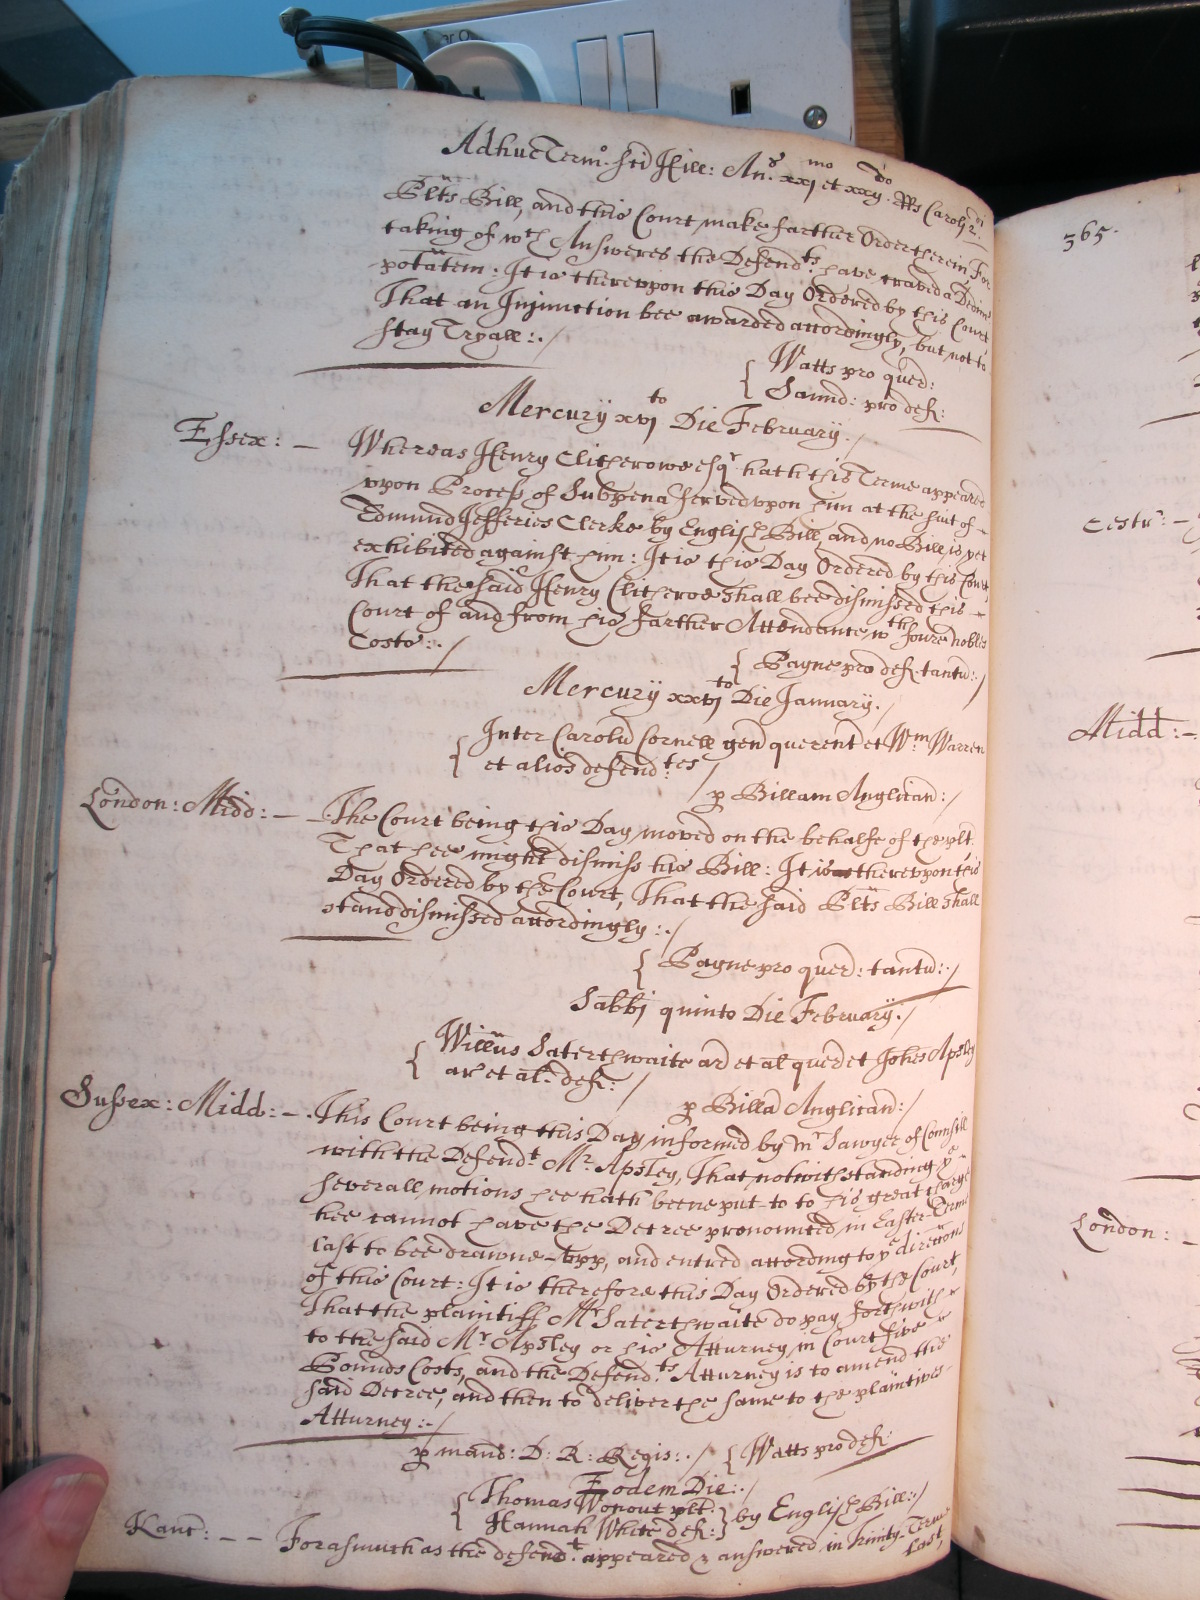 Adhuc Term.o Sci Hill: An.o xxj mo et xxij do R Rs Carolj 2 di
Plts Bill, and this Court make farther Order therein, For
taking of wch Answeres the Defend.ts have craved a Dedim
potatem: It is therevpon this Day Ordered by this Court
That an Injunction bee awarded accordingly, but not to
stay Tryall:./
{ Watts pro quer:
Saund: pro def:
Mercurij xvj to Die February./
Essex: — Whereas Henry Clitherowe esqr hath this Terme appeared
vpon Process of Subpena served vpon him at the suit of -
Edmund Jefferies Clerke by English Bill, and no Bill is yet
exhibited against him: It is this Day Ordered by this Court
That the said Henry Clitheroe shall bee dismissed this -
Court of and from his farther Attendance wth foure nobles
Costs:./
{ Payne pro def. tantu:./
Mercurij xxvj to Die January./
{ Inter Carolu Cornell gen querent et Wm Warren
et alios defend.tes /
p Billam Anglican:/
London: Midd: — The Court being this Day moved on the behalfe of the plt
That hee might dismiss his Bill: It is therevpon this
Day Ordered by the Court, That the said Plts Bill shall
stand dismissed accordingly:./
{ Payne pro quer: tantu:./
Sabbj quinto Die February./
{ Willus Saterthwaite ar et al quer et Johes Apsley
ar et al: def:/
p Billa Anglican:/
Sussex: Midd: — This Court being this Day informed by mr Sawyer of Counsell
with the Defend.t Mr. Apsley, That notwithstanding ye
severall motions hee hath beene put to to his great charge
hee cannot have the Decree pronounced in Easter Terme
last to bee drawne vpp, and entred according to ye direccons
of this Court: It is therefore this Day Ordered by the Court,
That the plaintiff Mr Saterthwaite do pay forthwith
to the said Mr Apsley or his Atturney in Court five
Pounds Costs, and the Defend.ts Atturney is to amend the
said Decree, and then to deliver the same to the plaintives
Atturney:-/
p mand: D: R: Regis:./ { Watts pro def:
Eodem Die:./
{ Thomas Wonout plt.
Hannah White def: } by English Bill:/
Kanc: — — Forasmuch as the defend.t appeared & answered in Trinity Terme
last,
365.
Cestr: -
Midd: -
London: -